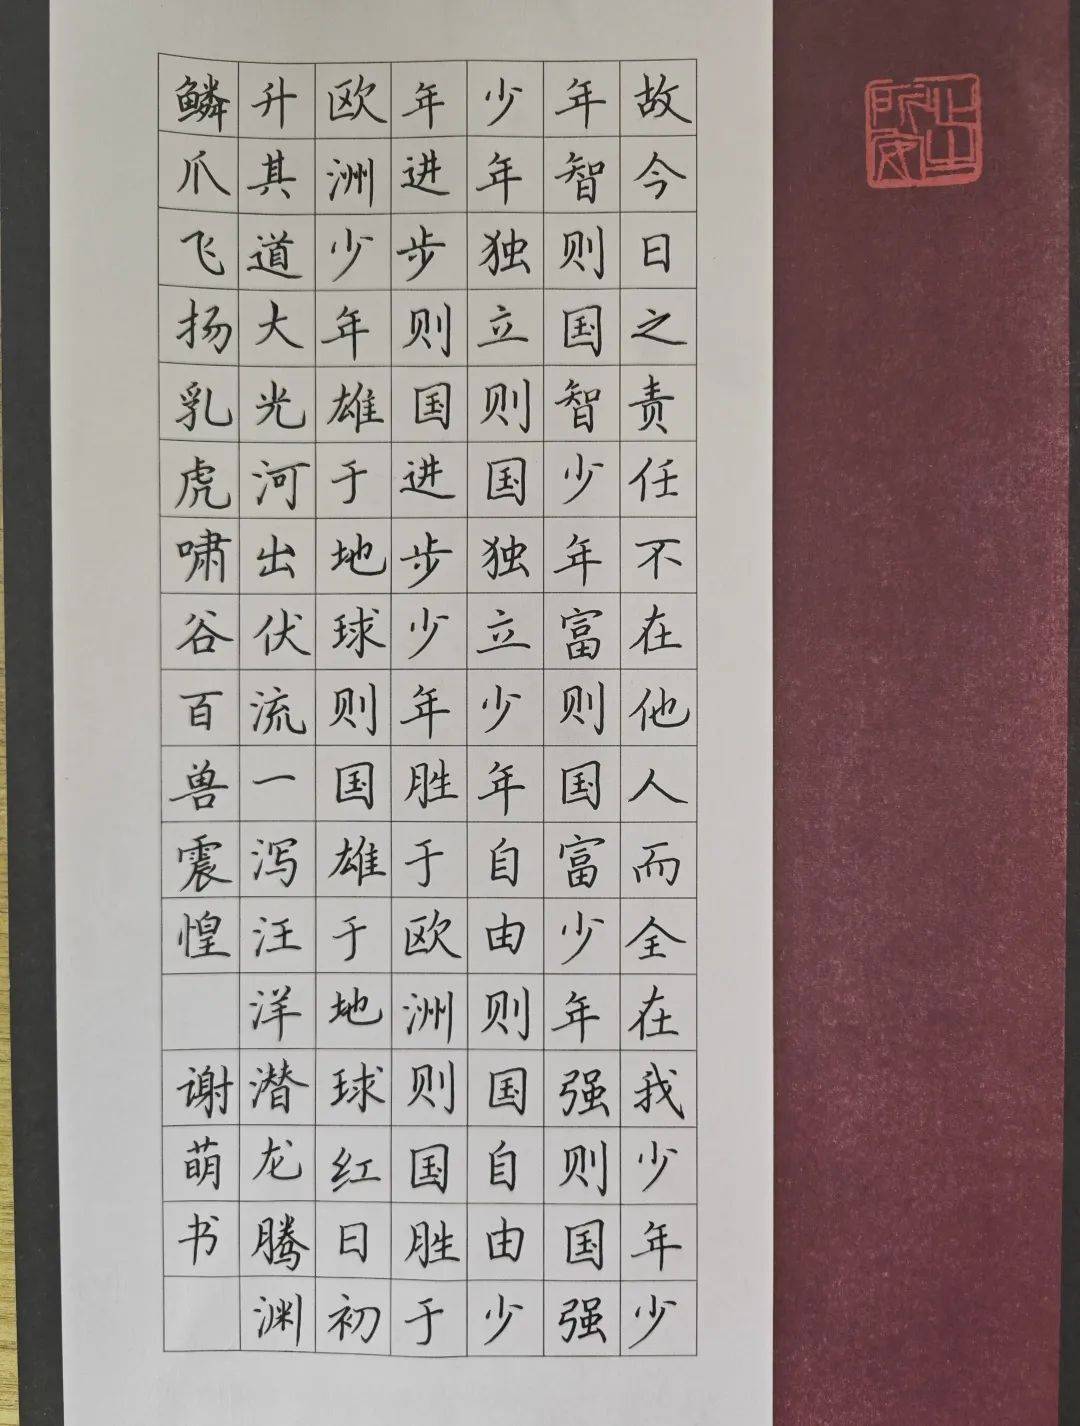 故今日之责任不在他人而全在我少年少
年智则国智少年富则国富少年强则国强
少年独立则国独立少年自由则国自由少
年进步则国进步少年胜于欧洲则国胜于
欧洲少年雄于地球则国雄于地球红日初
升其道大光河出伏流一泻汪洋潜龙腾渊
鳞爪飞扬乳虎啸谷百兽震惶 谢萌书